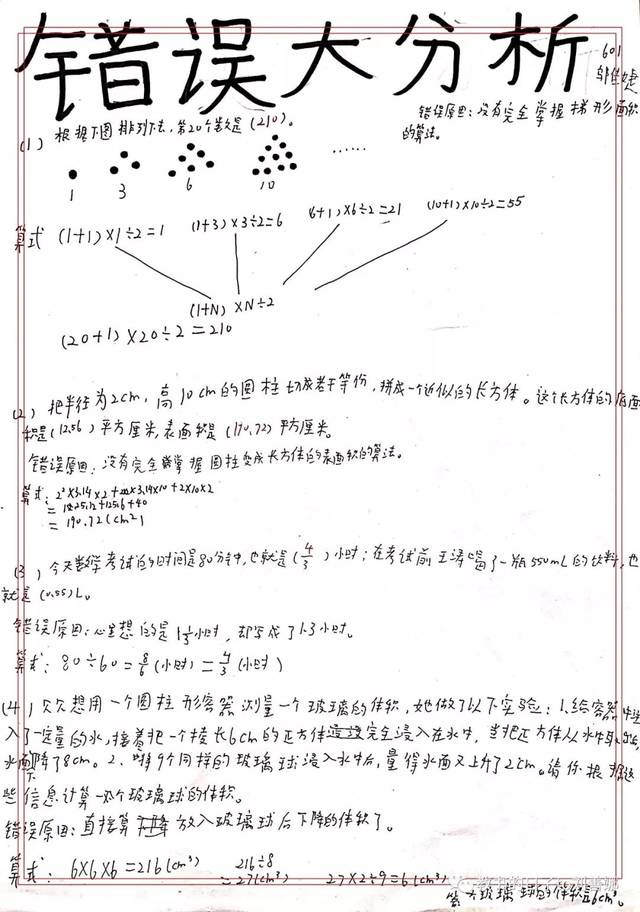 错误大分析
601
错误原因：没有完全掌握梯形面积的算法。
(1) 根据下图排列下去，第20个数是(210)。
1 3 6 10 ……
算式 (1+1)×1÷2=1 (1+3)×3÷2=6 (6+1)×6÷2=21 (10+1)×10÷2=55
(1+N)×N÷2
(20+1)×20÷2=210
(2) 把半径为2cm，高10cm的圆柱切成若干等份，拼成一个近似的长方体。这个长方体的底面
积是(12.56)平方厘米，表面积是(190.72)平方厘米。
错误原因：没有完全掌握圆柱变成长方体的表面积的算法。
算式：2²×3.14×2+2×2×3.14×10+2×10×2
=25.12+125.6+40
=190.72(cm²)
(3) 今天数学考试的时间是80分钟，也就是(4/3)小时；在考试前王涛喝了一瓶550mL的饮料，也
就是(0.55)L。
错误原因：心里想的是1⅓小时，却写成了1.3小时。
算式：80÷60=8/6(小时)=4/3(小时)
(4) 欠欠想用一个圆柱形容器测量一个玻璃球的体积，她做了以下实验：1.给容器中注
入了一定量的水，接着把一个棱长6cm的正方体完全浸入在水中，当把正方体从水中取出后，
水面下降了8cm。2.将9个同样的玻璃球浸入水中后，量得水面又上升了2cm。请你根据这
些信息计算一个玻璃球的体积。
错误原因：直接算放入玻璃球后下降的体积了。
算式：6×6×6=216(cm³) 216÷8
=27(cm³) 27×2÷9=6(cm³)
答：玻璃球的体积是6cm³。